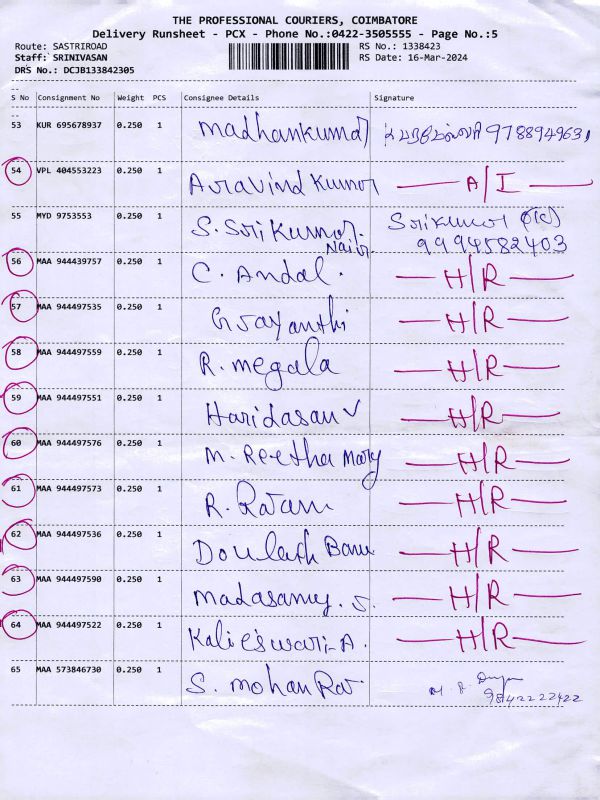 THE PROFESSIONAL COURIERS, COIMBATORE
Delivery Runsheet - PCX - Phone No.:0422-3505555 - Page No.:5
Route: SASTRIROAD
RS No.: 1338423
Staff: SRINIVASAN
RS Date: 16-Mar-2024
DRS No.: DCJB133842305
S No Consignment No Weight PCS Consignee Details Signature
53 KUR 695678937 0.250 1 Madhankumar 9788949631
54 VPL 404553223 0.250 1 Aravind Kumar A/I
55 MYD 9753553 0.250 1 S. Sri Kumar. Srikumar
Nair. 9994582403
56 MAA 944439757 0.250 1 C. Andal. H/R
57 MAA 944497535 0.250 1 H/R
58 MAA 944497559 0.250 1 R. megala H/R
59 MAA 944497551 0.250 1 Haridasan V H/R
60 MAA 944497576 0.250 1 M. Reetha Mary H/R
61 MAA 944497573 0.250 1 R. H/R
62 MAA 944497536 0.250 1 Doulath Banu H/R
63 MAA 944497590 0.250 1 Madasamy. S. H/R
64 MAA 944497522 0.250 1 Kalieswari-A. H/R
65 MAA 573846730 0.250 1 S. mohan Raj.
9842222422